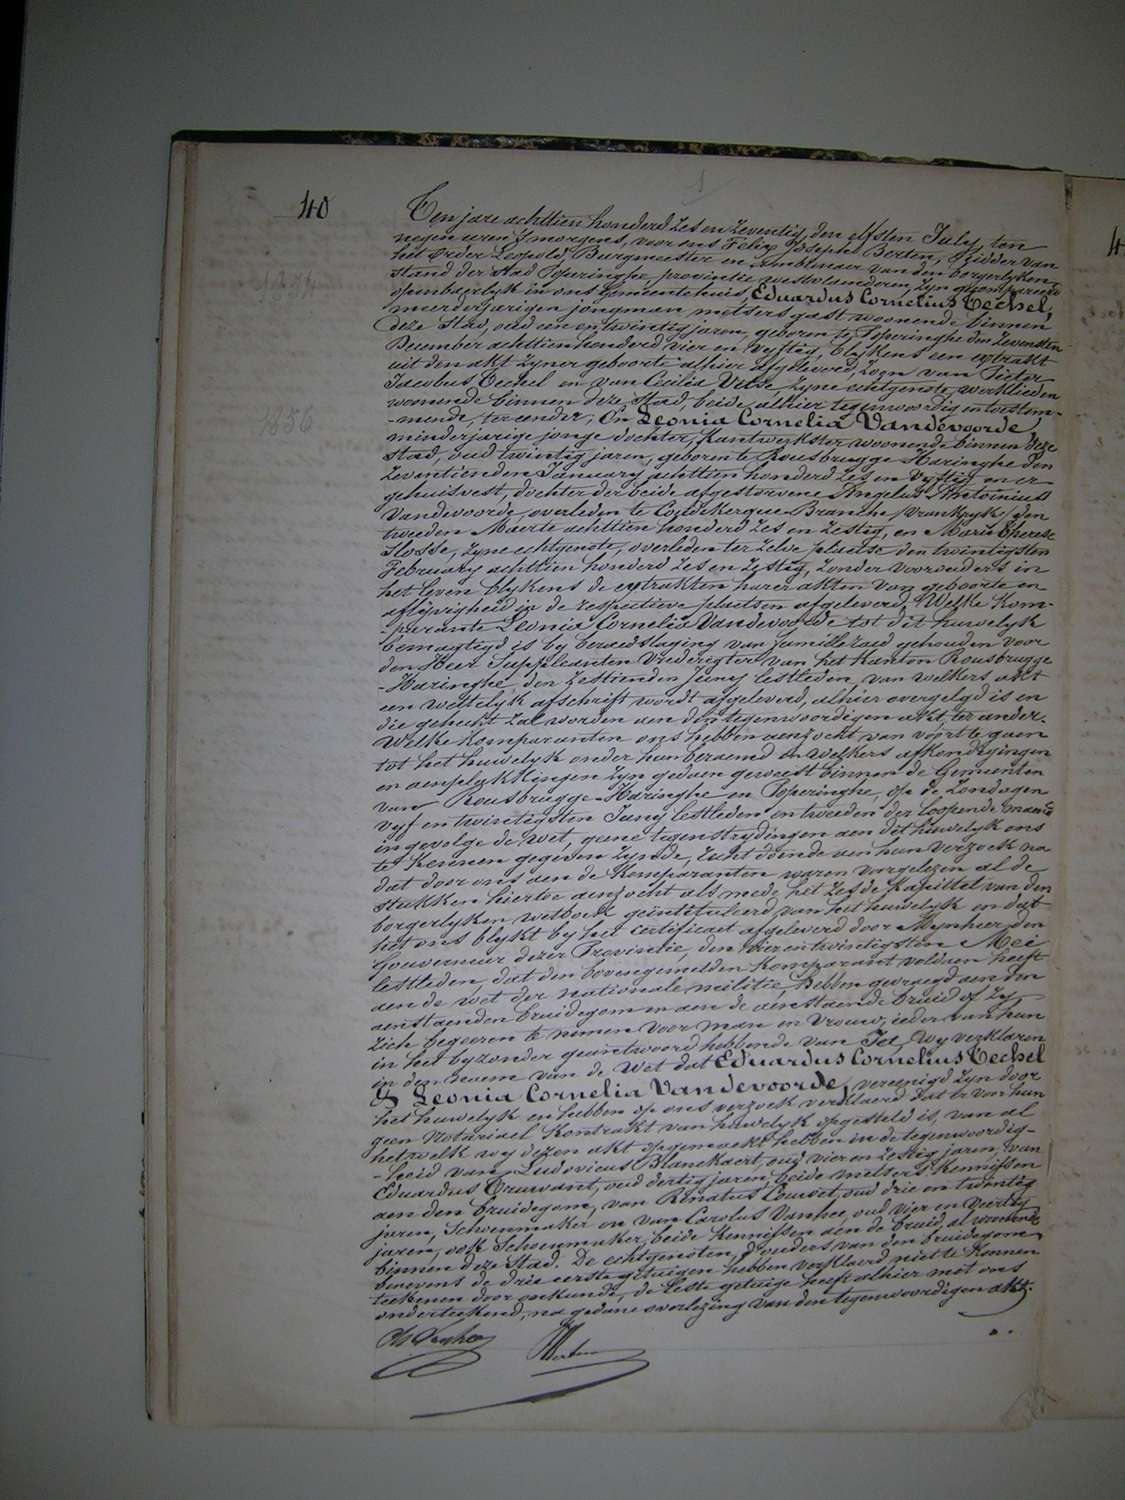 40
Ten jare achttien honderd zes en zeventig, den elfsten July, ten
negen uren 's morgens, voor ons Felix Joseph Berten, Ridder van
het Order Leopold, Burgmeester en Ambtenaer van den borgerlyken
stand der stad Poperinghe, provintie westvlaenderen, zyn gecompareerd
openbaerlyk in ons Gemeentehuis, Eduardus Cornelius Techel,
meerderjarigen jongman, metsers gast woonende binnen
deze stad, oud een en twintig jaren, geboren te Poperinghe den zevensten
December achttien honderd vier en vyftig, blykens een extrakt
uit den akt zyner geboorte alhier afgeleverd, zoon van Pieter
Jacobus Techel en van Cecilia Vitse, zyne echtgenote, werklieden
woonende binnen deze stad, beide alhier tegenwoordig en toestem-
-mende, ter eender, En Leonia Cornelia Vandevoorde,
minderjarige jonge dochter, Kantwerkster woonende binnen deze
stad, oud twintig jaren, geboren te Rousbrugge-Haringhe den
zeventienden January achttien honderd zes en vyftig en er
gehuisvest, dochter der beide afgestorvene Angelus Antoinius
Vandevoorde, overleden te Coudekerque-Branche, (vrankryk) den
tweeden Maerte achttien honderd zes en zestig, en Marie Therese
Slosse, zyne echtgenote, overleden ter zelve plaetse den twintigsten
February achttien honderd zes en zestig, zonder voorouders in
het leven blykens de extrakten harer akten van geboorte en
aflyvigheid in de respectieve plaetsen afgeleverd. Welke Kom-
-parante Leonia Cornelia Vandevoorde tot dit huwelyk
bemagtigd is by beraedslaging van familleraed gehouden voor
den Heer Suppleanten Vrederegter van het Kanton Rousbrugge
-Haringhe, den zestienden Juny lestleden, van welkers akt
een wettelyk afschrift wordt afgeleverd, alhier overgelegd is en
die gehecht zal worden aen den tegenwoordigen akt, ter ander.
Welke Komparanten ons hebben aenzocht van voort te gaen
tot het huwelyk onder hun beraemd en welkers afkondigingen
en aenplakkingen zyn gedaen geweest binnen de Gemeenten
van Rousbrugge-Haringhe en Poperinghe, op de zondagen
vyf en twintigsten Juny lestleden en tweeden der loopende maend
ingevolge de wet, geene tegenstrydingen aen dit huwelyk ons
te kennen gegeven zynde, Recht doende aen hun verzoek na
dat door ons aen de Komparanten waren voorgelezen al de
stukken hiertoe aenzocht als mede het zesde kapittel van den
borgerlyken wetboek geïntituleerd van het huwelyk en dat
het ons blykt by het certificaet afgeleverd door Mynheer den
Gouverneur dezer Provintie, den vier en twintigsten Mei
lestleden, dat den bovengemelden Komparant voldaen heeft
aen de wet der nationale militie, Hebben gevraegd aen den
aenstaenden bruidegom en aen de aenstaende bruid of zy
zich begeeren te nemen voor man en vrouw, ieder van hun
in het byzonder geäntwoord hebbende van Ja, wy verklaren
in den naem van de Wet dat Eduardus Cornelius Techel
& Leonia Cornelia Vandevoorde, vereenigd zyn door
het huwelyk en hebben op ons verzoek verklaerd dat er van hun
geen Notariael Kontrakt van huwelyk opgesteld is, van al
het welk wy dezen akt opgemaekt hebben in de tegenwoordig-
-heid van Ludovicus Blanckaert, oud vier en zestig jaren, van
Eduardus Cruwant, oud dertig jaren, beide metsers Kennissen
aen den bruidegom, van Renatus Louvet, oud drie en twintig
jaren, Schoenmaker en van Carolus Vanhee, oud vier en veertig
jaren, ook Schoenmaker, beide Kennissen aen de bruid, al woonende
binnen deze stad. De echtgenoten, d'ouders van den bruidegom,
benevens de drie eerste getuigen hebben verklaerd niet te Konnen
teekenen door onkunde, de leste getuige heeft alhier met ons
onderteekend, na gedane overlezing van den tegenwoordigen akt.
Berten